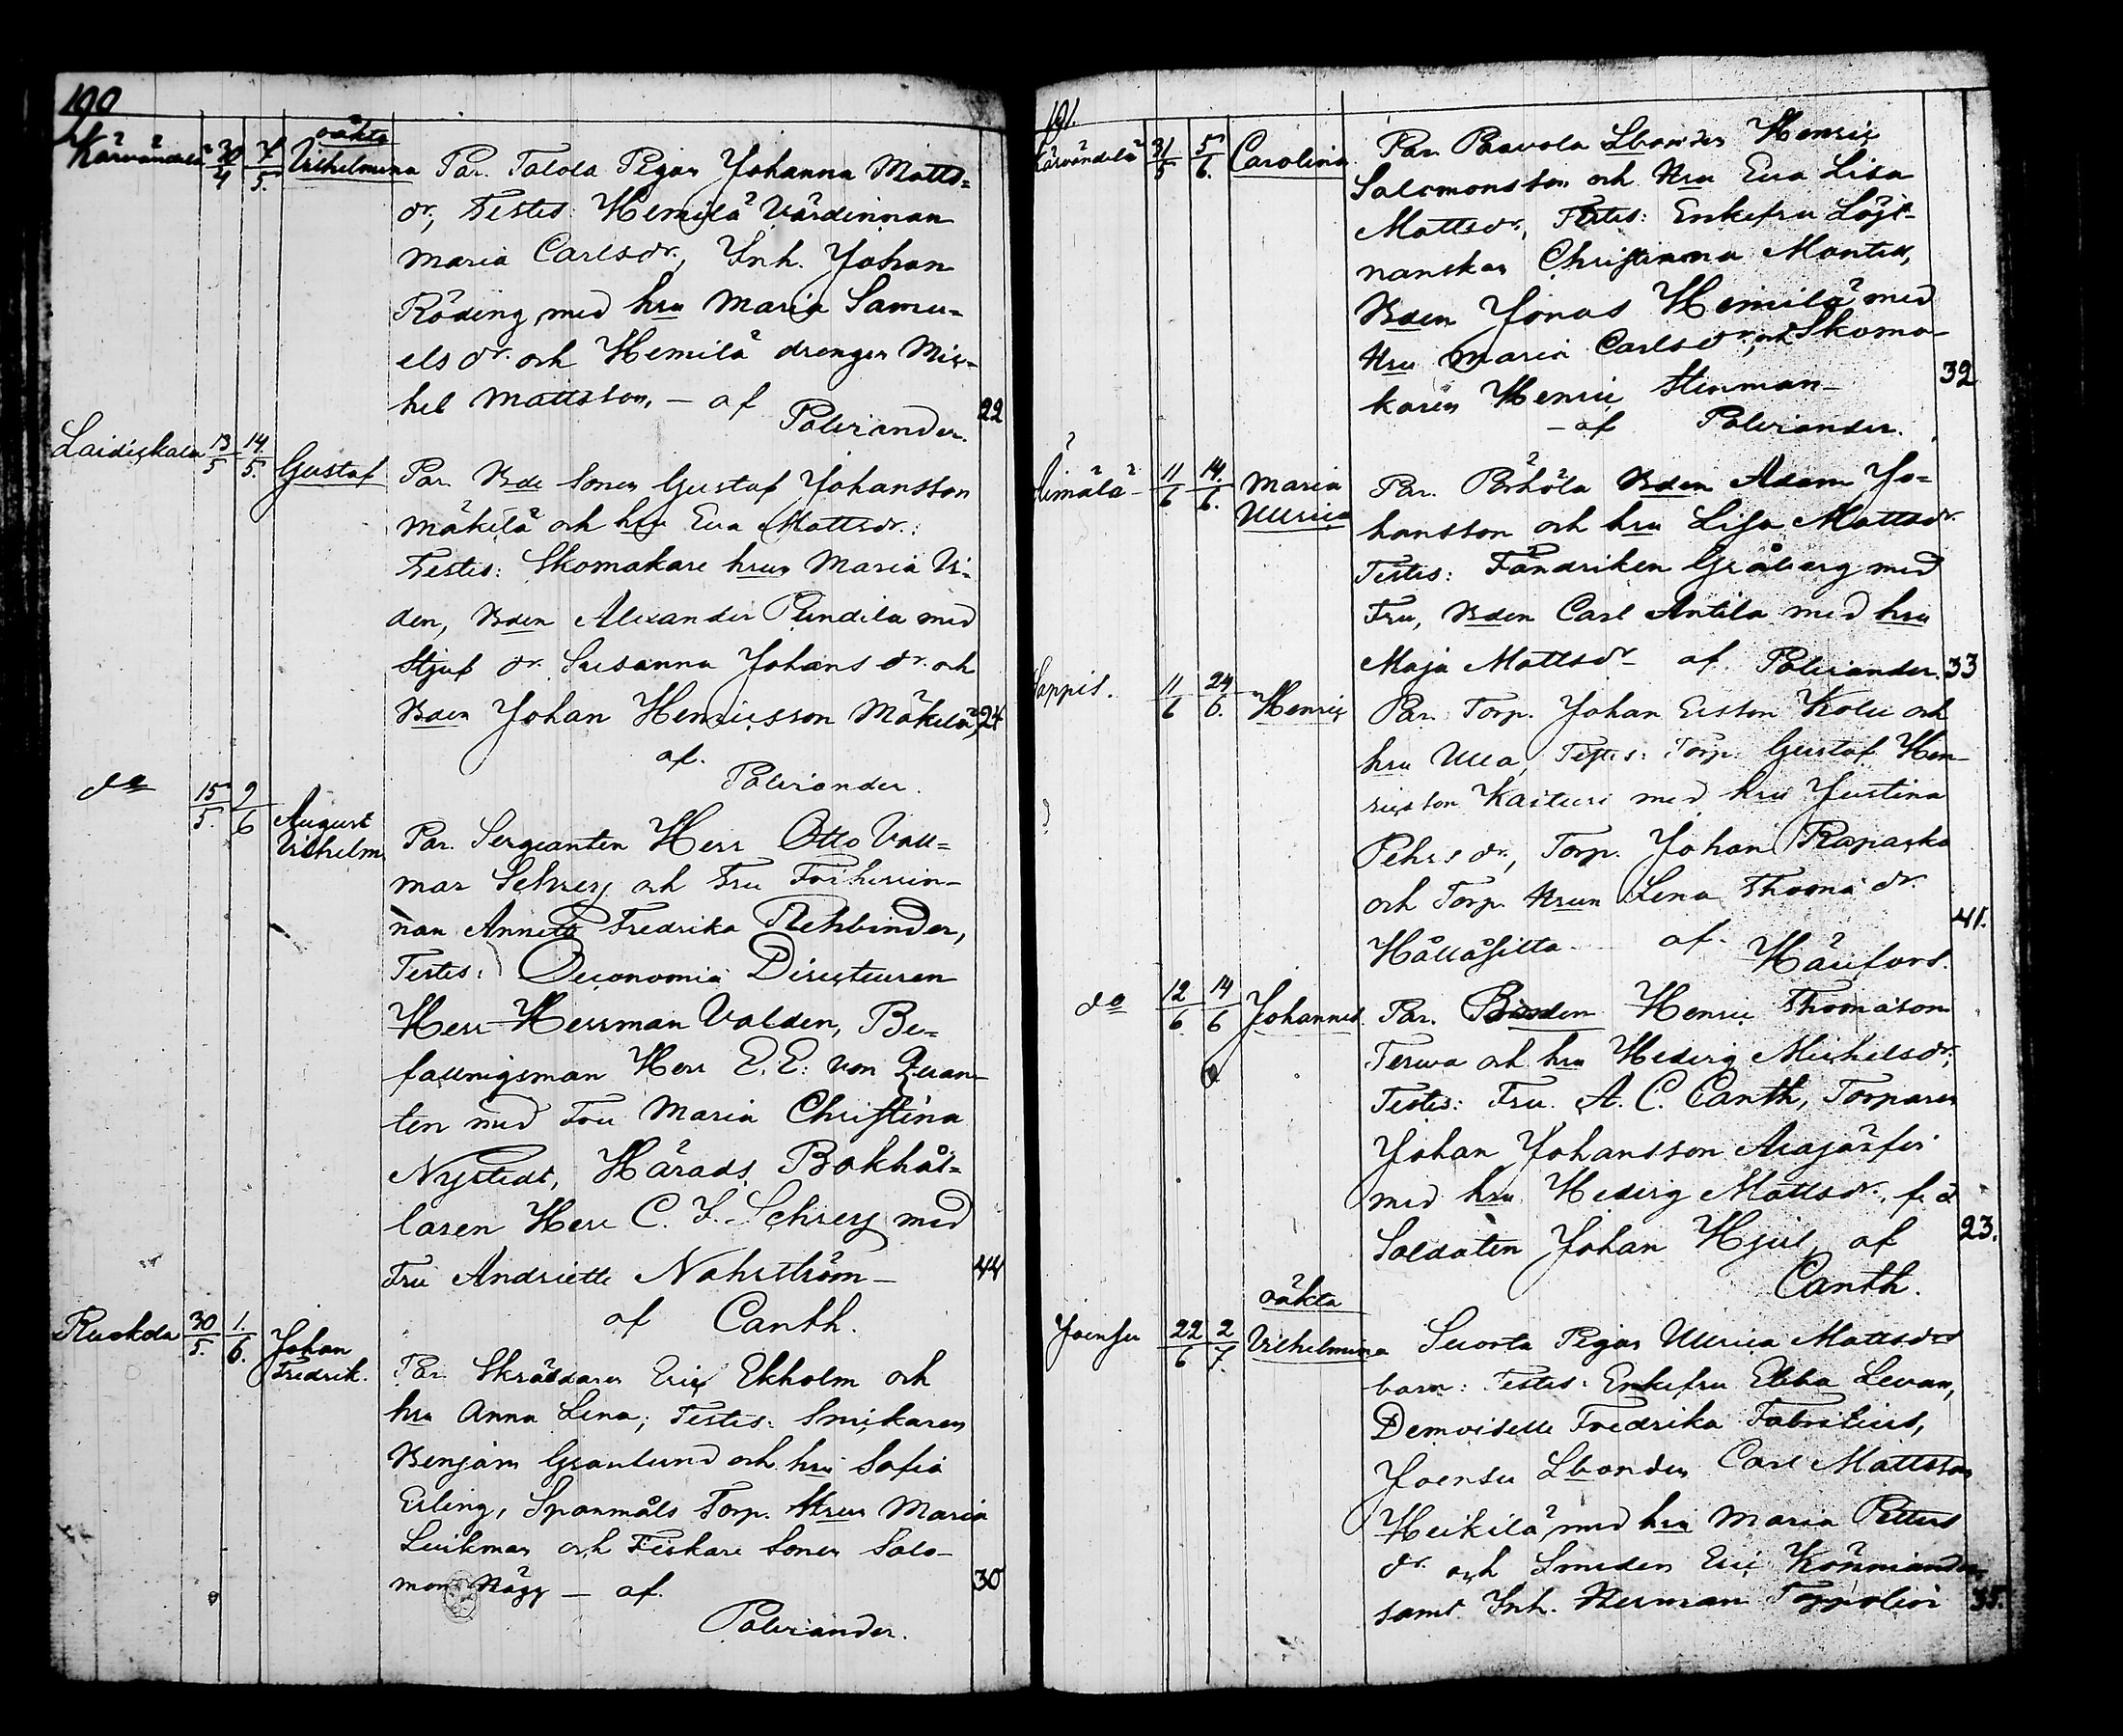 190
Kärvändelä 30/4 7/5 oäkta
Vilhelmina Par. Talola Pigan Johanna Matts=
dr, Testes: Hemilä Värdinnan
Maria Carlsdr., Inh. Johan
Röding med hru Maria Samu=
els dr. och Hemilä drengen Mic=
hel Mattsson, — af
Polviander. 22
Laidickala 13/5 14/5. Gustaf Par. Bde Sonen Gustaf Johansson
Mäkilä och hru Eva Mattsdr.:
Testes: Skomakare hrun Maria Vi=
den, Bden Alexander Pundila med
Stjuf dr. Susanna Johans dr. och
Bden Johan Henricsson Mäkilä, 24
af.
Polviander.
do 15/5. 9/6 August
Vilhelm Par. Sergeanten Herr Otto Vall=
mar Schrey och Fru Friherrin=
nan Annette Fredrika Rehbinder,
Testes: Oeconomiæ Directeuren
Herr Herrman Valden, Be=
fallnigsman Herr E. E: von Quan=
ten med Fru Maria Christina
Nystedt, Härads Bokhål=
laren Herr C. F. Schrey med
Fru Andriette Nohrström — 44
af Canth.
Ruskola 30/5. 1./6. Johan
Fredrik. Par. Skräddaren Eric Ekholm och
hru Anna Lena; Testes: Snickaren
Benjam Granlund och hru Sofia
Erling, Spanmåls Torp. Hrun Maria
Luikman och Fiskare Sonen Salo=
mon Hägg — af. 30
Polviander.
191.
Kärvändelä 31/5 5/6. Carolina Par. Paavola Lbonden Henric
Salomonsson och Hru Eva Lisa
Mattsdr, Testes: Enkefru Löjt=
nanskan Christianna Montell,
Bden Jonas Hemilä med
Hru Maria Carlsdr, och Skoma=
karen Henric Stenman — 32
— af Polviander.
Äimälä 11/6 14./6. Maria
Ulrica Par. Pörhölä Bden Adam Jo=
hansson och hru Lisa Mattsdr
Testes: Fändriken Gråberg med
Fru, Bden Carl Antila med hru
Maja Mattsdr — af. Polviander. 33
Sappis. 11/6 24/6. Henric Par. Torp. Johan Ersson Kolu och
hru Ulla, Testes: Torp. Gustaf Hen=
ricsson Kaituri med hru Justina
Pehrs dr, Torp. Johan Rapacko
och Torp. Hrun Lena Thomæ dr.
Hållåsilta — af. 41.
Häufors.
do 12/6. 14/6 Johannes Par. Bonden Henric Thomasson
Terwa och hru Hedvig Michelsdr,
Testes: Fru A. C. Canth, Torparen
Johan Johansson Arajärfvi
med hru Hedvig Mattsdr, f. d
Soldaten Johan Hjul, af 23.
Canth.
Joensu 22/6 2/7. oäkta
Vilhelmina Suorta Pigan Ulrica Mattsdrs
barn: Testes: Enkefru Ebba Levan,
Demoiselle Fredrika Fabritius,
Joensu Lbonden Carl Mattsson
Heikilä med hru Maria Petters
dr. och Smeden Eric Könniander
samt Inh. Herman Toppolin 35.